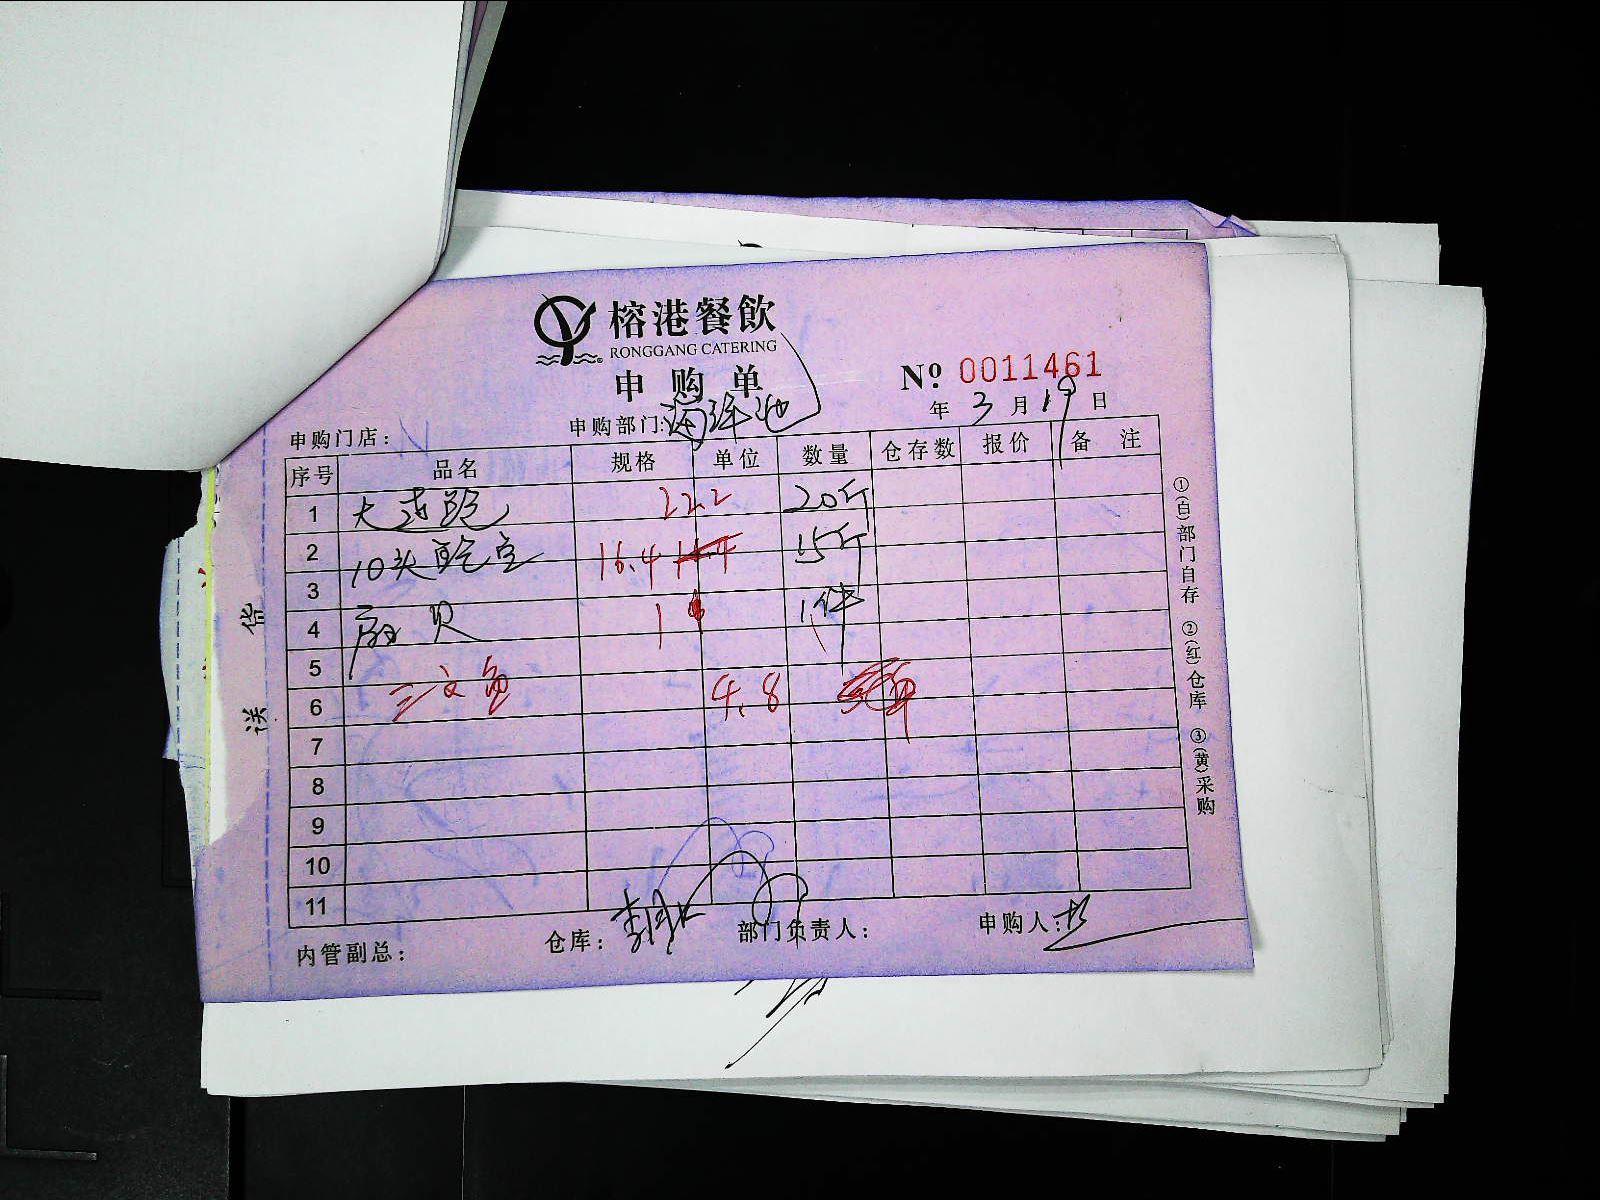 榕港餐飲
RONGGANG CATERING
申购单
Nº 0011461
年 3 月 19 日
申购门店：
申购部门:海鲜池
序号 品名 规格 单位 数量 仓存数 报价 备 注
1 大连鲍 22.2 20斤
2 10头 16.4 15斤
3
4 扇贝 1 1件
5
6 三文鱼 4.8
7
8
9
10
11
内管副总：
仓库：
部门负责人：
申购人:
①(白)部门自存 ②(红)仓库 ③(黄)采购
送货